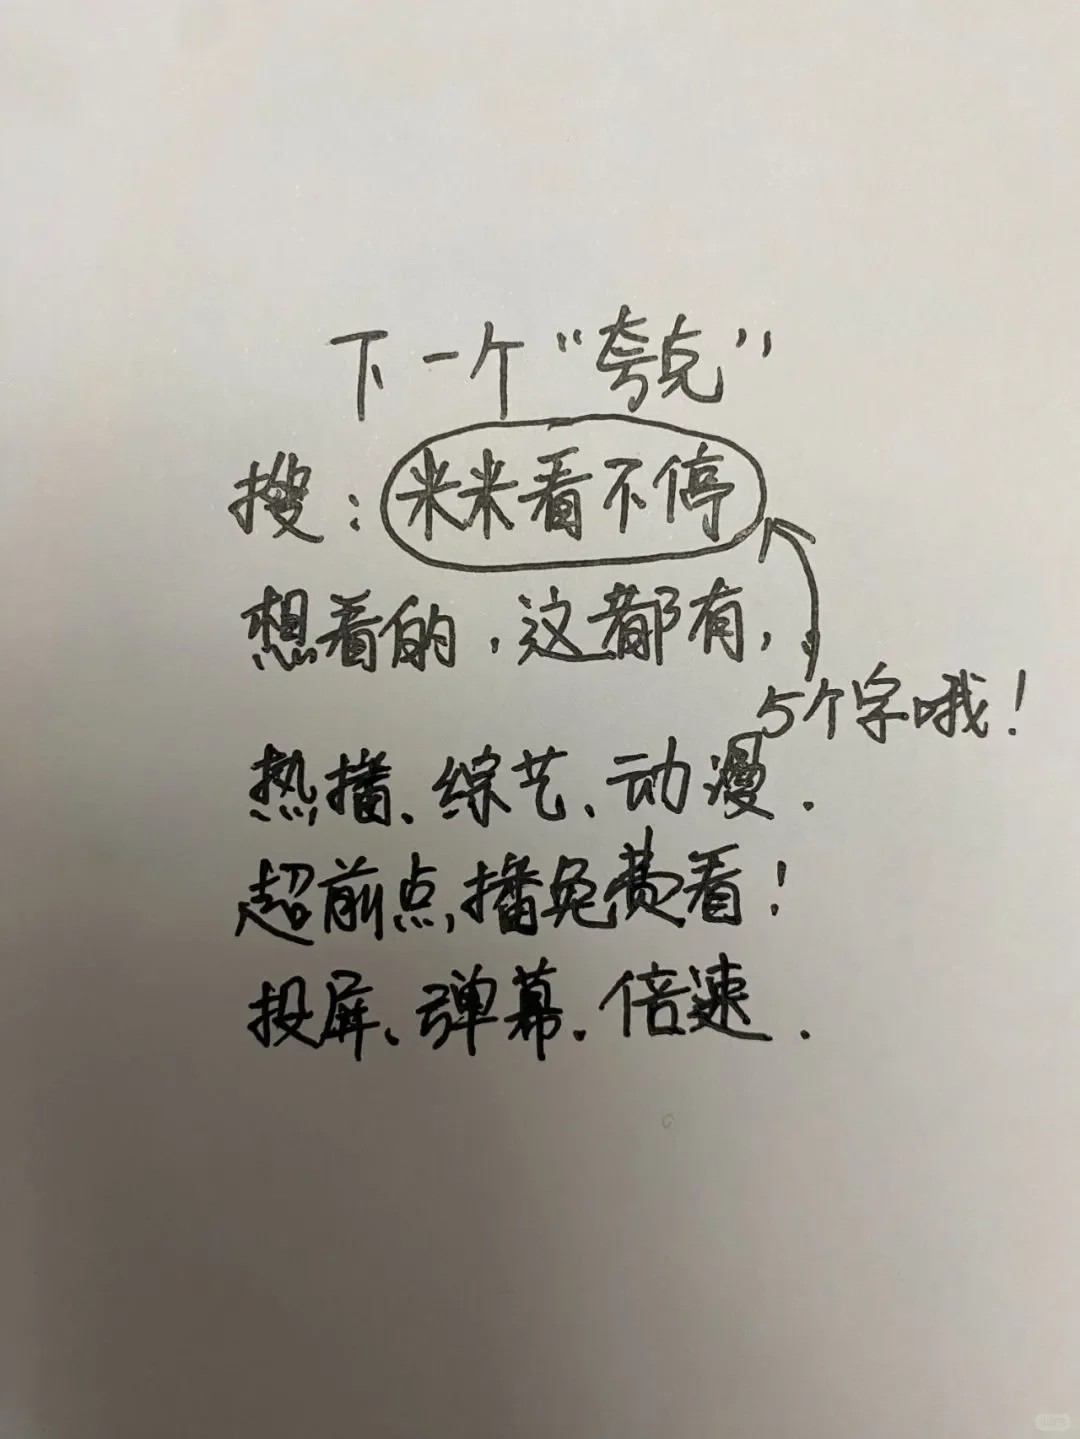 下一个“夸克”
搜：米米看不停
想看的，这都有，
5个字哦！
热播、综艺、动漫.
超前点,播免费看！
投屏、弹幕.倍速.